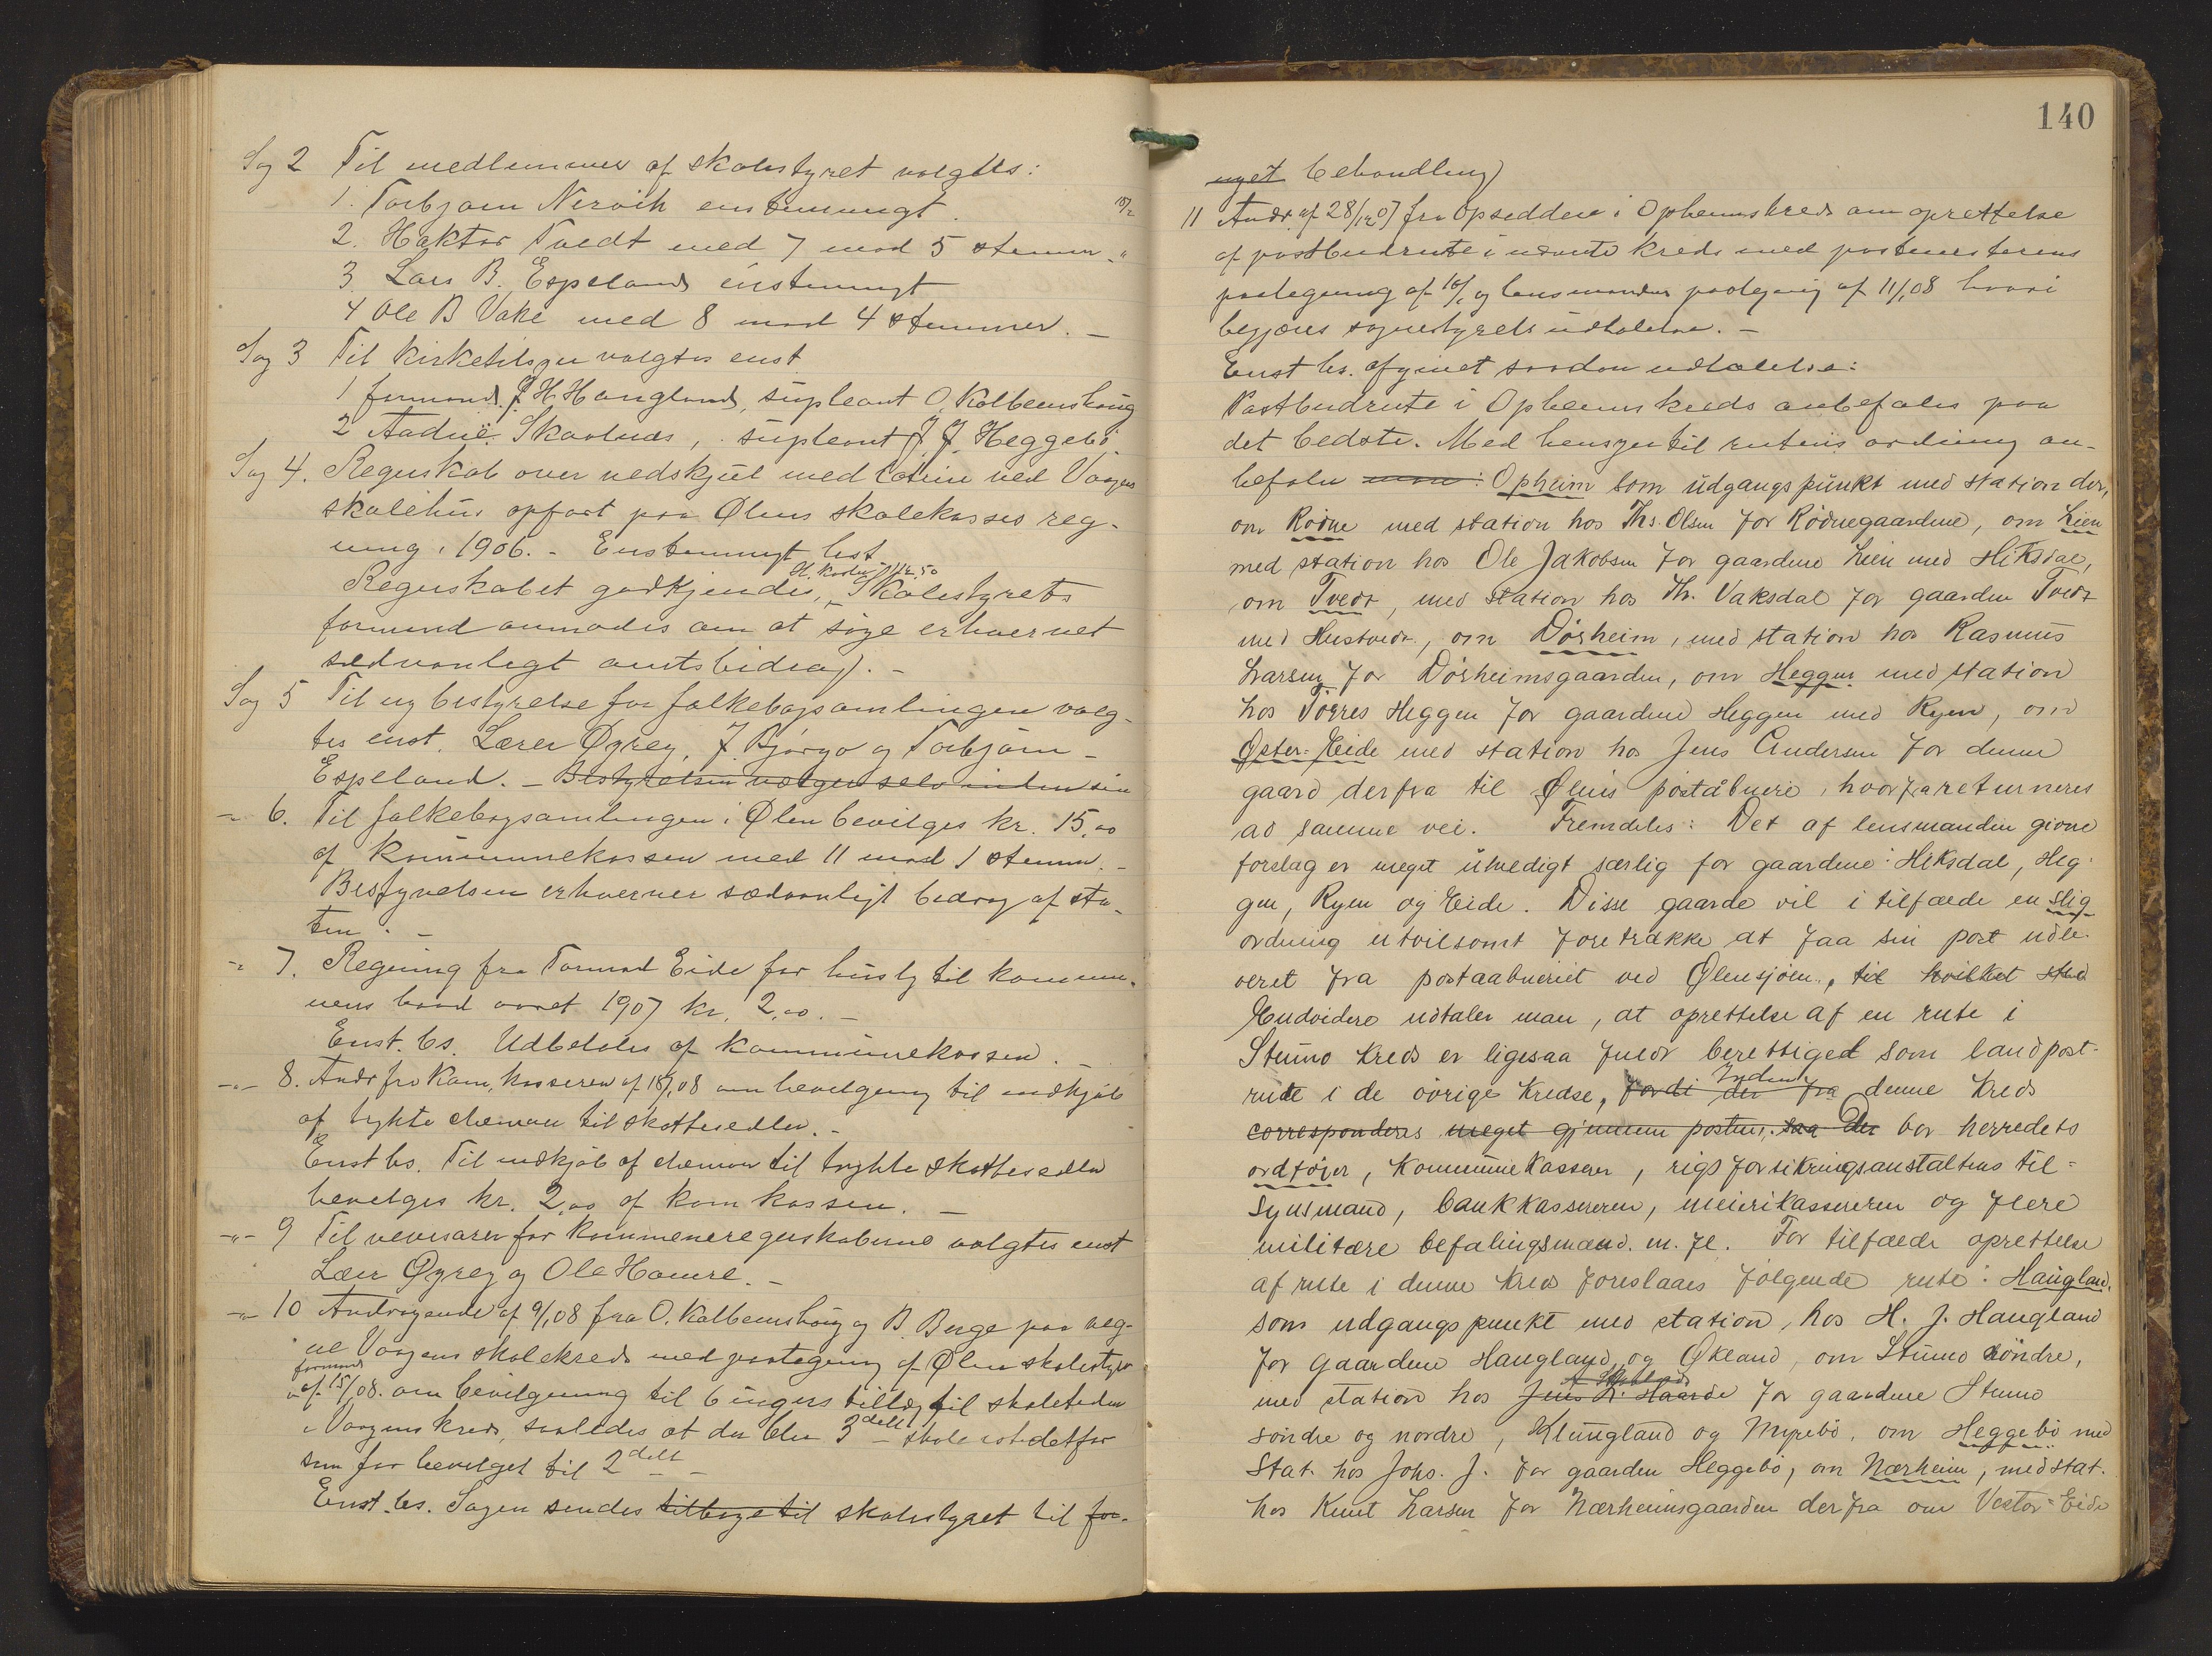 Sag 2 Til medlemmer af skolestyret valgtes:
1. Torbjørn Nervik enstemmigt.
2. Haktor Tvedt med 7 mod 5 stemmer. "
3. Lars B. Espeland enstemmigt
4 Ole B Vake med 8 mod 4 stemmer. –
Sag 3 Til kirketilsyn valgtes enst
1 formand. J H. Haugland, supleant O. Kalbeinshaug
2 Aadne Skaaluds, supleant J. J. Heggebø.
Sag 4. Regnskab over vedskjul med latrine ved Vaagens
skolehus opført paa Ølens skolekasses reg-
ning i 1906. – Enstemmigt best
Regnskabet godkjendes, Skolestyrets
formand anmodes om at søge erhvervet
sedvanligt amtsbidrag. –
Sag 5 Til ny bestyrelse for folkebogsamlingen valg-
tes enst. Lærer Øyrey, J. Bjørgo og Torbjørn
Espeland. – Bestyrelsen vælger selv inden sin
–"– 6. Til folkebogsamlingen i Ølen bevilges kr. 15,00
af kommunekassen med 11 mod 1 stemme. –
Bestyrelsen erhverver sædvanligt bidrag af sta-
ten. –
–"– 7. Regning fra Tormod Eide for husly til kommu-
nens baad aaret 1907 kr. 2,00. –
Enst. bs. Udbetales af kommunekassen. –
–"– 8. Andr fra Kom. kassereren af 18/1 08 om bevilgning til indkjøb
af trykte skemaer til skattesedler. –
Enst bs. Til indkjøb af skemaer til trykte skattesedler
bevilges kr. 2,00 af kom kassen. –
–"– 9 Til revisorer for kommuneregnskaberne valgtes enst
Lærer Øyrey og Ole Hamre. –
–"– 10 Andragende af 9/1 08 fra O. Kalbeinshaug og B. Berge paa veg-
ne Vaagens skolekreds med paategning af Ølen skolestyre
formand
af 15/1 08. om bevilgning til 6 ugers tillæg til skoletiden
i Vaagens kreds, saaledes at der blev 3 delt skole istedetfor
som før bevilget til 2 delt –
Enst. bs. Sagen sendes tilbage til skolestyret til for-
140
nyet behandling)
11 Andr. af 28/12 07 fra opsiddere i Opheimskreds om oprettelse
af postbudrute i nævnte kreds med postmesterens
paategning af 10/1 og lensmandens paategning af 11/1 08 hvori
begjæres sognestyrets udtalelse. –
Enst bs. afgivet saadan udtalelse:
Postbudrute i Opheimskreds anbefales paa
det bedste. Med hensyn til rutens ordning an-
befaler man: Opheim som udgangspunkt med station der,
om Rødne med station hos Ths. Olsen for Rødnegaardene, om Lien
med station hos Ole Jakobsen for gaardene Lien med Hiksdal,
om Tvedt, med station hos Th. Vaksdal for gaarden Tvedt
med Hustvedt, om Dørheim, med station hos Rasmus
Larsen for Dørheimsgaarden, om Heggen med station
hos Torres Heggen for gaardene Heggen med Ryen, om
Øster-Eide med station hos Jens Andersen for denne
gaard derfra til Ølens poståbneri, hvorfra returneres
ad samme vei. Fremdeles: Det af lensmanden givne
forslag er meget uheldigt særlig for gaardene: Hiksdal, Heg-
gen, Ryen og Eide. Disse gaarde vil i tilfælde en slig
ordning utvilsomt foretrække at faa sin post udle-
veret fra postaabneriet ved Ølensjøen., til hvilket sted
Endvidere udtaler man, at oprettelse af en rute i
Stumo kreds er ligesaa fuldt berettiged som landpost-
rude i de øvrige kredse, fordi der fra Inden denne kreds
corresponderes meget gjennem posten, saa Der bor herredets
ordfører, kommunekasserer, rigsforsikringsanstaltens til-
synsmand, bankkassereren, meierikassereren og flere
militære befalingsmænd. m. fl. For tilfælde oprettelse
af rute i denne kreds foreslaaes følgende rute: Haugland,
som udgangspunkt med station, hos H. J. Haugland
for gaardene Haugland og Økland, om Stumo søndre,
med station hos Jens L. Haarde for gaardene Stumo
søndre og nordre, Klungland og Myrebø, om Heggebø med
Stat. hos Johs. J. for gaarden Heggebø, om Nærheim, med stat.
hos Knut Larsen for Nærheimsgaarden derfra om Vester-Eide